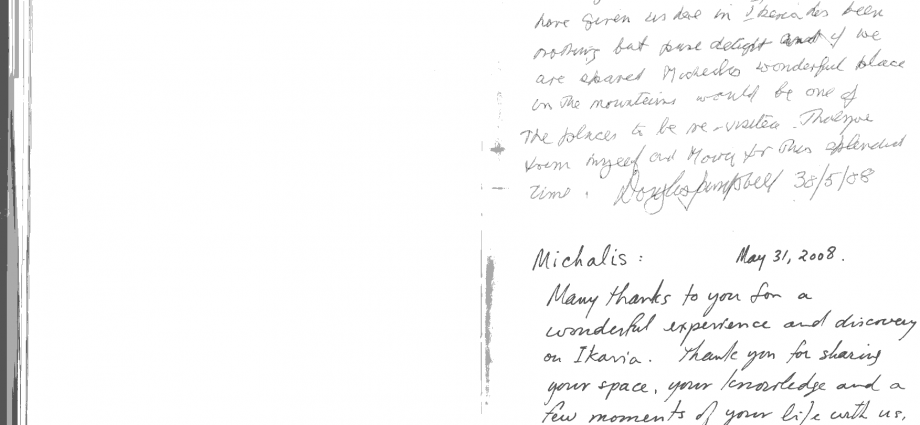 have given us here in Ikaria has been
nothing but pure delight and if we
are spared Michalis wonderful place
in the mountains would be one of
the places to be re-visited. Thank you
from myself and Mary for this splendid
time. Douglas Campbell 30/5/08
Michalis: May 31, 2008.
Many thanks to you for a
wonderful experience and discovery
on Ikaria. Thank you for sharing
your space, your knowledge and a
few moments of your life with us.